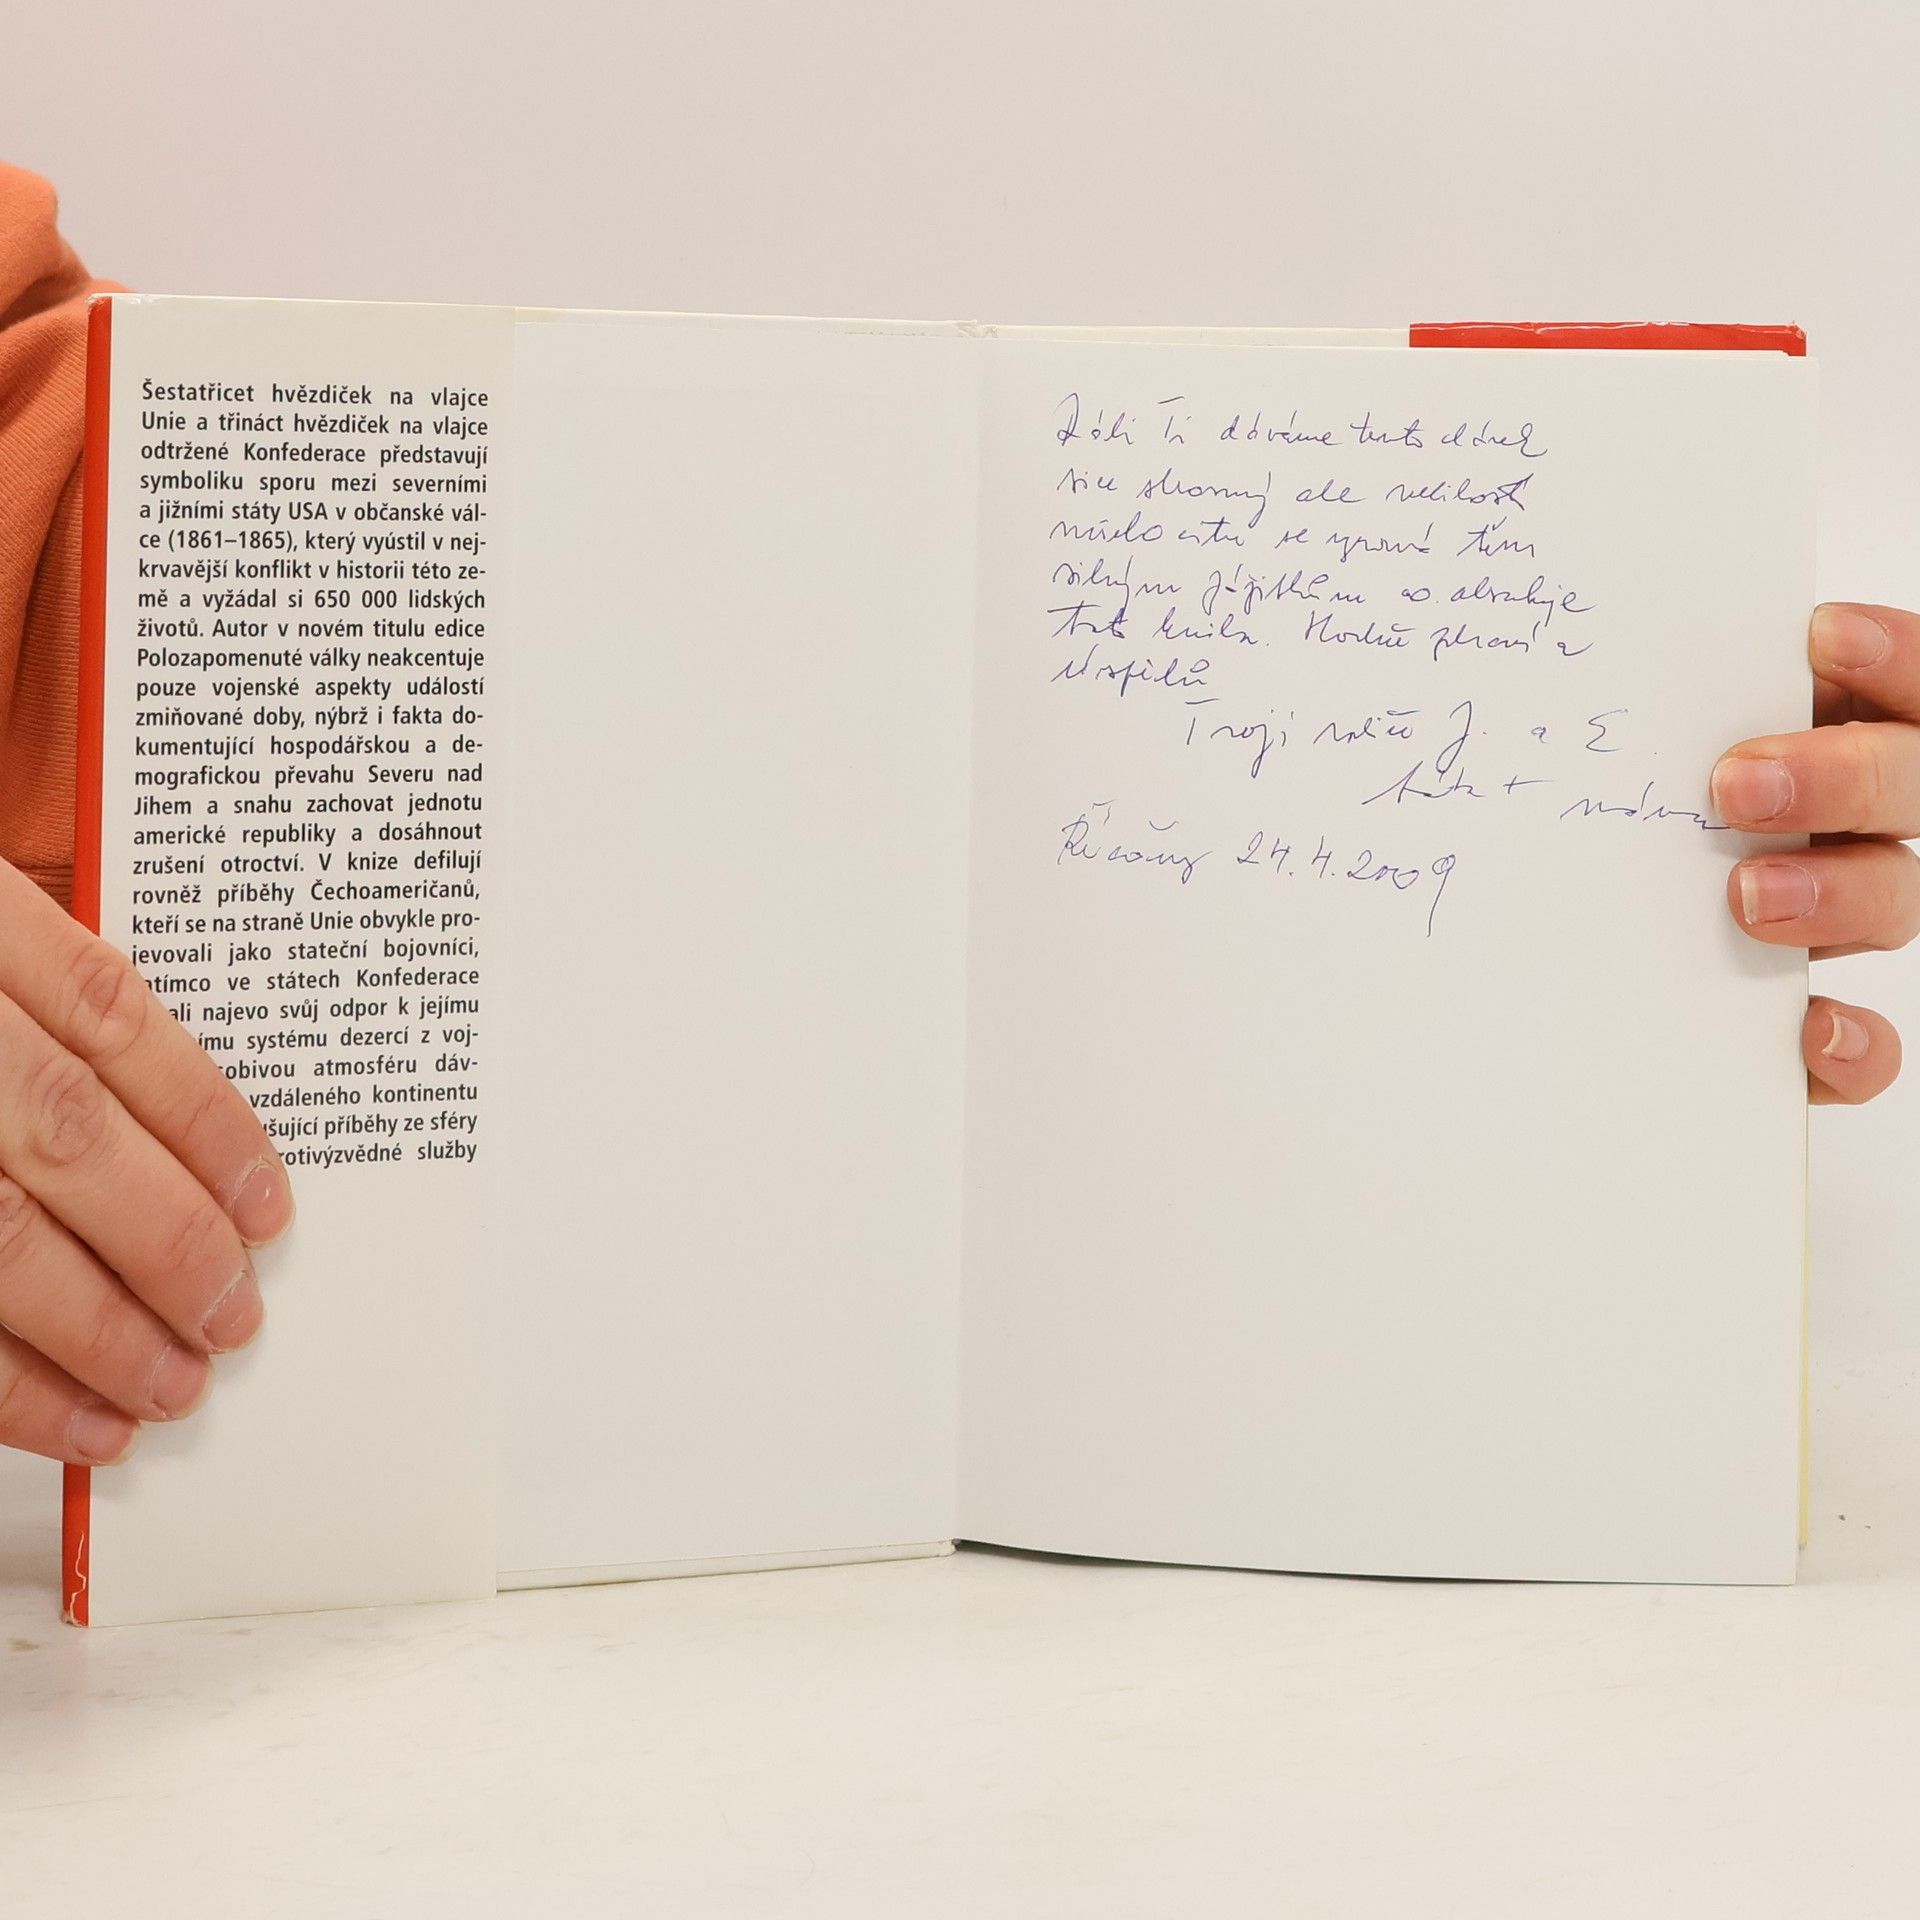 Šestatřicet hvězdiček na vlajce
Unie a třináct hvězdiček na vlajce
odtržené Konfederace představují
symboliku sporu mezi severními
a jižními státy USA v občanské vál-
ce (1861–1865), který vyústil v nej-
krvavější konflikt v historii této ze-
mě a vyžádal si 650 000 lidských
životů. Autor v novém titulu edice
Polozapomenuté války neakcentuje
pouze vojenské aspekty událostí
zmiňované doby, nýbrž i fakta do-
kumentující hospodářskou a de-
mografickou převahu Severu nad
Jihem a snahu zachovat jednotu
americké republiky a dosáhnout
zrušení otroctví. V knize defilují
rovněž příběhy Čechoameričanů,
kteří se na straně Unie obvykle pro-
jevovali jako stateční bojovníci,
atímco ve státech Konfederace
ali najevo svůj odpor k jejímu
ímu systému dezercí z voj-
sobivou atmosféru dáv-
vzdáleného kontinentu
ušující příběhy ze sféry
rotivýzvědné služby
Rádi Ti dáváme tento dárek
sice skromný ale velikostí
citů se vyrovná těm
silným zážitkům co obsahuje
tato kniha. Hodně zdraví a
úspěchů
Tvoji rodiče J. a E.
táta + máma
Říčany 24.4.2009